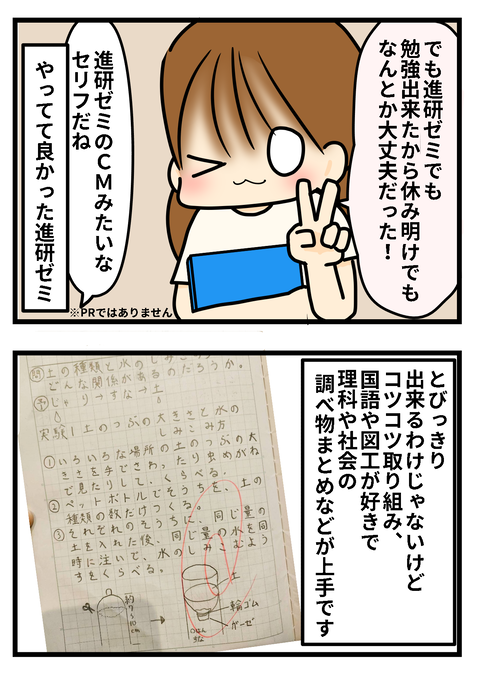 でも進研ゼミでも
勉強出来たから休み明けでも
なんとか大丈夫だった！
進研ゼミのCMみたいな
セリフだね
やってて良かった進研ゼミ
※PRではありません
とびっきり
出来るわけじゃないけど
コツコツ取り組み、
国語や図工が好きで
理科や社会の
調べ物まとめなどが上手です
問 土の種類と水のしみこみ
どんな関係があるのだろうか。
予 じゃり→すな→土
実験1 土のつぶの大きさと水の
しみこみ方
①いろいろな場所の土のつぶの大
きさを手でさわったり虫めがね
で見たりして、くらべる。
②ペットボトルでそうちを、土の
種類の数だけつくる。
③それぞれのそうちに、同じ量の
土を入れた後、同じ量の水を同
時に注いで、水のしみこむよう
すをくらべる。
約
10
cm
土
輪ゴム
ガーゼ